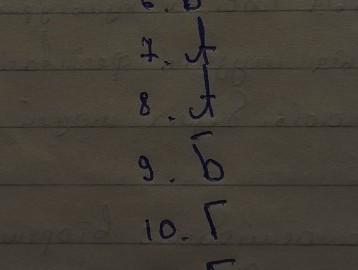 6. Б
7. А
8. А
9. Б
10. Г